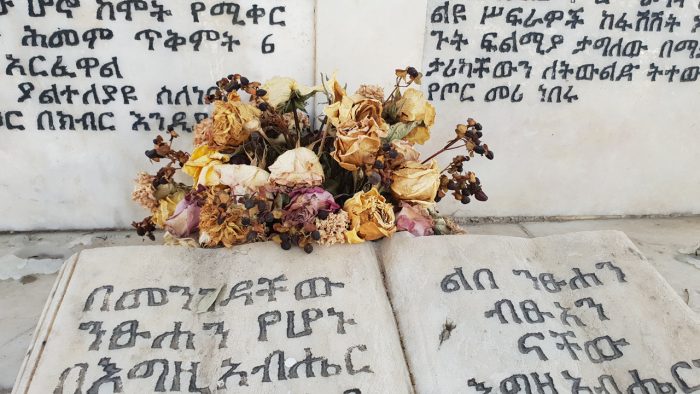 ሆኖ አሞት የሚቀር
ሕመም ጥቅምት 6
አርፈዋል
ያልተለያዩ
በክብር
ልዩ ሥፍራዎች ከፋሽስት
ፍልሚያ ታግለው
ታሪካቸውን ለትውልዳ
የጦር መሪ ነበሩ
በመንገዳቸው
ንፁሐን የሆኑ
በእግዚ አብሔር
ልበ ንፁሐን
ብፁአን
ናቸው
እግዚ አብሔር